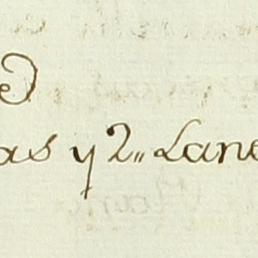 as y 2,, Lane